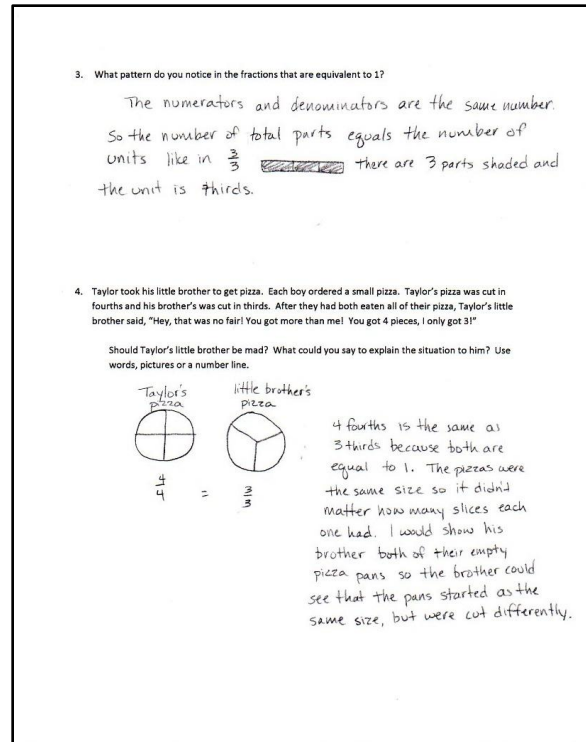 3. What pattern do you notice in the fractions that are equivalent to 1?
The numerators and denominators are the same number.
So the number of total parts equals the number of
units like in 3/3 there are 3 parts shaded and
the unit is thirds.
4. Taylor took his little brother to get pizza. Each boy ordered a small pizza. Taylor's pizza was cut in
fourths and his brother's was cut in thirds. After they had both eaten all of their pizza, Taylor's little
brother said, "Hey, that was no fair! You got more than me! You got 4 pieces, I only got 3!"
Should Taylor's little brother be mad? What could you say to explain the situation to him? Use
words, pictures or a number line.
Taylor's
pizza
little brother's
pizza
4/4 = 3/3
4 fourths is the same as
3 thirds because both are
equal to 1. The pizzas were
the same size so it didn't
matter how many slices each
one had. I would show his
brother both of their empty
pizza pans so the brother could
see that the pans started as the
same size, but were cut differently.